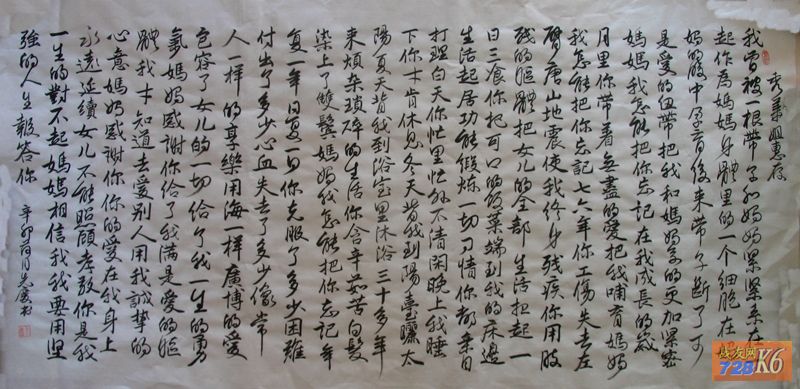 秀華姐惠存
我曾被一根带子和妈妈紧紧系在一
起作為媽媽身體里的一个細胞在妈
妈的腹中孕育後来带子断了可
是愛的纽带把我和媽媽系的更加紧密
媽媽我怎能把你忘记在我成長的歲
月里你带着無盡的愛把我哺育媽媽
我怎能把你忘记七六年你工傷失去左
臂唐山地震使我终身残疾你用肢
残的軀體把女儿的全部生活担起一
日三餐你把可口的饭菜端到我的床邊
生活起居功能锻炼一切事情你都亲自
打理白天你忙里忙外不清闲晚上我睡
下你才肯休息冬天背我到陽臺曬太
陽夏天背我到浴室里沐浴三十多年
来烦杂琐碎的生活你含辛茹苦白髮
染上了雙鬓媽媽我怎能把你忘记年
复一年日复一日你克服了多少困難
付出了多少心血失去了多少像常
人一様的享樂用海一樣廣博的愛
包容了女儿的一切给了我一生的勇
氣媽媽感谢你给了我满是愛的軀
體我才知道去爱别人用我誠摯的
心意媽媽感谢你你的爱在我身上
永遠延续女儿不能照顾孝敬你是我
一生的對不起媽媽相信我我要用坚
强的人生報答你
辛卯荷月
战友网
728K6